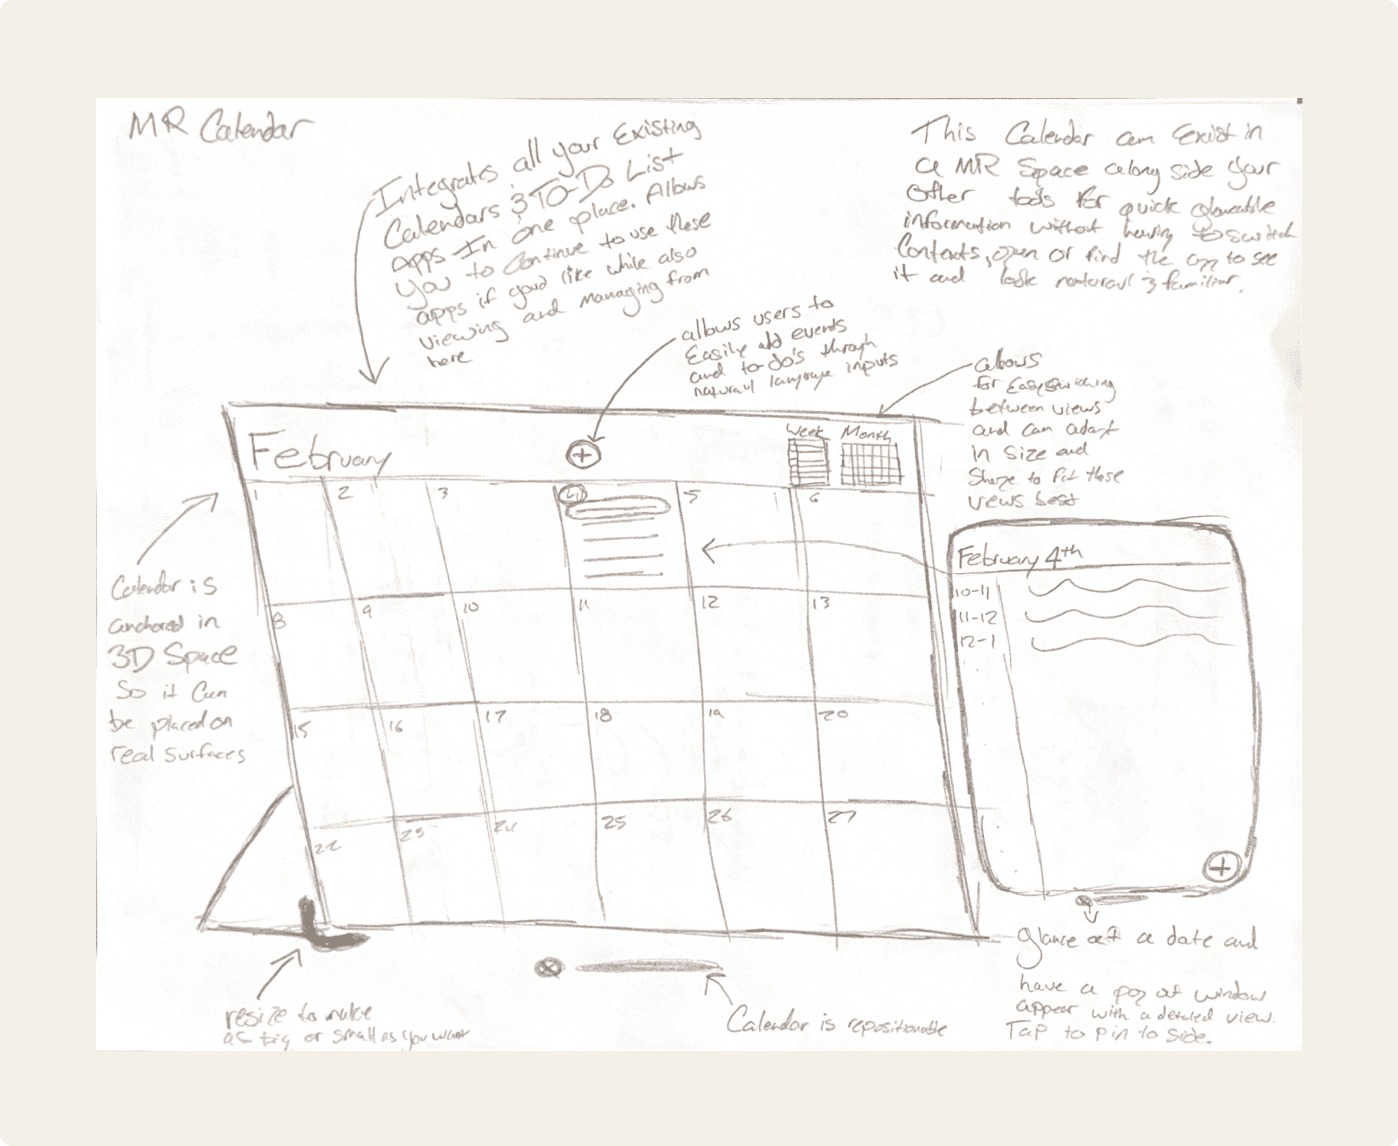 MR Calendar
Integrates all your Existing
Calendars & TO-DO List
Apps In one place. Allows
you to continue to use these
apps if you'd like while also
viewing and managing from
here
This Calendar can Exist in
a MR Space along side your
other tools for quick glanceable
information without having to switch
Contexts, open or find the app to see
it and look natural & familiar.
allows users to
Easily add events
and to-do's through
natural language inputs
allows
for easy switching
between views
and can adapt
in size and
Shape to fit those
views best
February
+
Week Month
1 2 3 4 5 6
8 9 10 11 12 13
15 16 17 18 19 20
22 23 24 25 26 27
Calendar is
anchored in
3D Space
So it can
be placed on
real surfaces
February 4th
10-11
11-12
12-1
+
resize to make
as big or small as you want
Calendar is repositionable
glance at a date and
have a pop out window
appear with a detailed view.
Tap to pin to side.